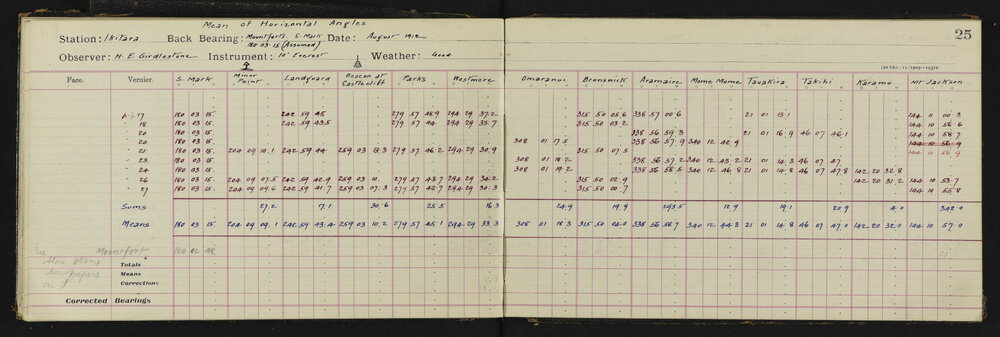 Mean of Horizontal Angles
25
Station: Ikitara Back Bearing: Mountfort's S. Mark Date: August 1912
180 03 15 (Assumed)
Observer: H. E. Girdlestone Instrument: 10" Everest Weather: Good
Face. Vernier. S. Mark Minor Point Landguard Beacon at Castlecliff Parks Westmere Omaranui Brunswick Aramaire Mome Mome Tauakira Takihi Karamu Mt Jackson
17 180 03 15. 242 59 45 279 57 48.9 294 29 37.2 315 50 05.6 338 57 00.6 21 01 13.1 144 11 00.3
18 180 03 15. 242 59 43.5 279 57 44 294 29 33.7 315 50 03.2 144 10 56.6
20 180 03 15. 338 56 59.3 21 01 16.9 46 07 46.1 144 10 58.7
20 180 03 15. 308 01 17.5 338 56 57.9 340 12 42.9 144 10 56.9
21 180 03 15. 204 09 10.1 242 59 44 259 03 13.3 279 57 46.2 294 29 30.9 315 50 07.5 144 10 56.9
23 180 03 15. 308 01 18.2 338 56 57.2 340 12 43.2 21 01 14.3 46 07 47
24 180 03 15. 308 01 19.2 338 56 58.5 340 12 46.8 21 01 14.8 46 07 47.8 142 20 32.8
26 180 03 15. 204 09 07.5 242 59 42.9 259 03 10. 279 57 43.7 294 29 34.2 315 50 02.9 142 20 31.2 144 10 53.7
27 180 03 15. 204 09 09.6 242 59 41.7 259 03 07.3 279 57 42.7 294 29 30.3 315 50 00.7 144 10 55.8
Sums 27.2 17.1 30.6 25.5 16.3 24.9 19.9 293.5 12.9 19.1 20.9 4.0 342.0
Means 180 03 15 204 09 09.1 242 59 43.4 259 03 10.2 279 57 45.1 294 29 33.3 308 01 18.3 315 50 04.0 338 56 58.7 340 12 44.3 21 01 14.8 46 07 47.0 142 20 32.0 144 10 57.0
Mountfort 180 02 48
star obsns
Totals
papers
Means
on
Corrections
Corrected Bearings